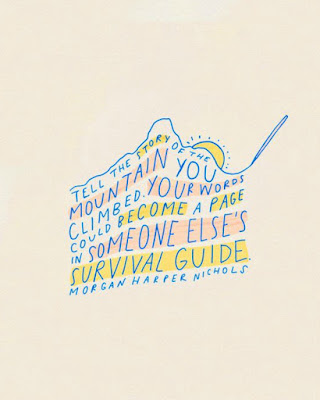 TELL THE STORY OF THE
MOUNTAIN YOU
CLIMBED. YOUR WORDS
COULD BECOME A PAGE
IN SOMEONE ELSE'S
SURVIVAL GUIDE.
MORGAN HARPER NICHOLS